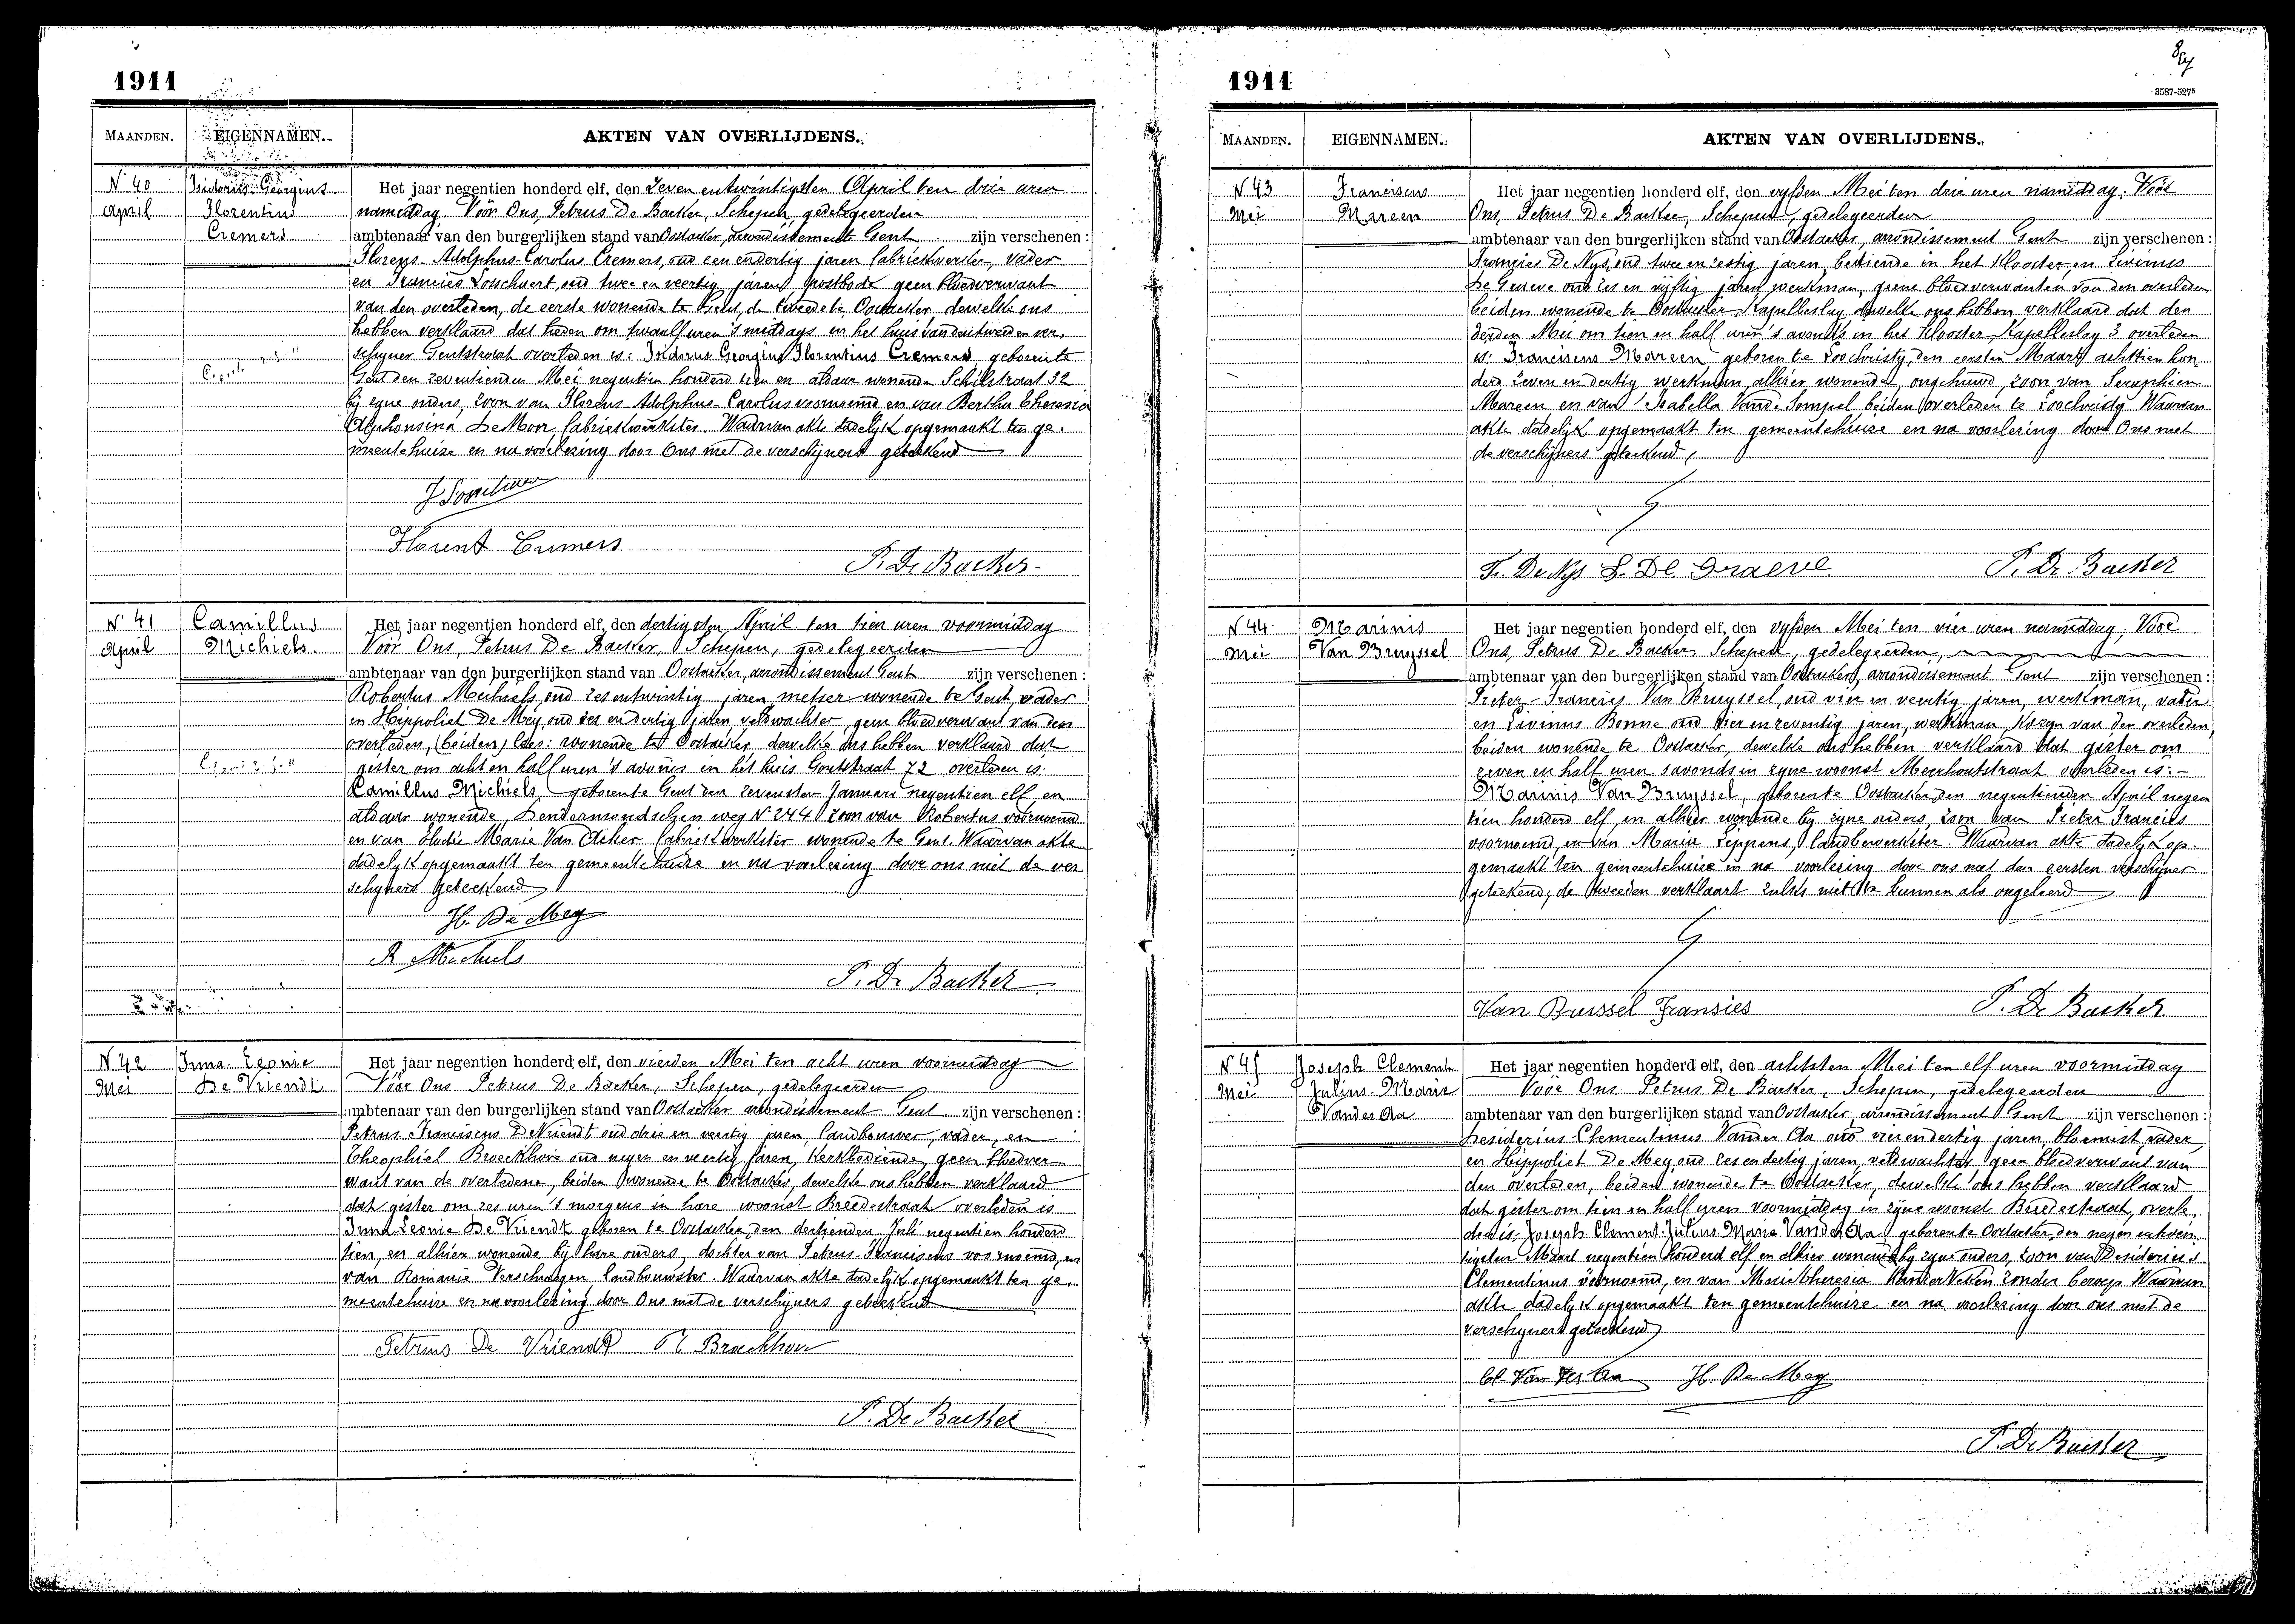 1911
MAANDEN.
EIGENNAMEN.
AKTEN VAN OVERLIJDENS.
N° 40
April
Isidorus Georgius
Florentius
Cremers
Het jaar negentien honderd elf, den zeven entwintigsten April ten drie uren
namiddag Vóór Ons, Petrus De Backer, Schepen, gedelegeerden
ambtenaar van den burgerlijken stand van Oostacker, arrondissement Gent zijn verschenen:
Florens-Adolphus-Carolus Cremers, oud een endertig jaren fabriekwerker, vader
en Francies Losschaert, oud twee en veertig jaren, postbode geen bloedverwant
van den overleden, de eerste wonende te Gent, de tweede te Oostacker, dewelke ons
hebben verklaard dat heden om twaalf uren 's middags in het huis van den tweeden ver-
schyner Gentstraat overleden is: Isidorus Georgius Florentius Cremers geboren te
Gent den zeventienden Mei negentien honderd tien en aldaar wonende Schilstraat 32
bij zyne ouders, zoon van Florens-Adolphus-Carolus voornoemd en van Bertha Theresia
Alphonsina De Moor fabriekwerkster. Waarvan akte dadelyk opgemaakt ten ge-
meentehuize en na voorlezing door Ons met de verschijners geteekend
Florent Cremers
P. De Backer
N° 41
April
Camillus
Michiels
Het jaar negentien honderd elf, den dertigsten April ten tien uren voormiddag
Vóór Ons, Petrus De Backer, Schepen, gedelegeerden
ambtenaar van den burgerlijken stand van Oostacker, arrondissement Gent zijn verschenen:
Robertus Michiels, oud zes entwintig jaren, metser wonende te Gent, vader
en Hippoliet De Mey, oud zes en dertig jaren veldwachter, geen bloedverwant van den
overleden, (beiden) lees: wonende te Oostacker, dewelke ons hebben verklaard dat
gister om acht en half uren 's avonds in het huis Gentstraat 72 overleden is:
Camillus Michiels, geboren te Gent den zevensten Januari negentien elf en
aldaar wonende, Dendermondschen weg N° 244 zoon van Robertus voornoemd
en van Elodie Marie Van Acker fabriekwerkster wonende te Gent. Waarvan akte
dadelyk opgemaakt ten gemeentehuize en na voorlezing door ons met de ver
schyners geteekend
H. De Mey
R Michiels
P. De Backer
N° 42
Mei
Irma Leonie
De Vriendt
Het jaar negentien honderd elf, den vierden Mei ten acht uren voormiddag
Vóór Ons Petrus De Backer, Schepen, gedelegeerden
ambtenaar van den burgerlijken stand van Oostacker arrondissement Gent zijn verschenen:
Petrus Franciscus De Vriendt oud drie en veertig jaren, landbouwer, vader, en
Theophiel Broeckhove oud negen en veertig jaren, Kerkbediende, geen bloedver-
want van de overledene, beiden wonende te Oostacker, dewelke ons hebben verklaard
dat gister om zes uren 's morgens in hare woonst Breedestraat overleden is
Irma Leonie De Vriendt geboren te Oostacker, den dertienden Juli negentien honderd
tien, en alhier wonende bij hare ouders, dochter van Petrus Franciscus voornoemd, en
van Romanie Verschraegen, landbouwster. Waarvan akte dadelyk opgemaakt ten ge-
meentehuize en na voorlezing door Ons met de verschyners geteekend
Petrus De Vriendt Th Broeckhove
P. De Backer
1911
3587-5275
MAANDEN.
EIGENNAMEN.
AKTEN VAN OVERLIJDENS.
N° 43
Mei
Franciscus
Mareen
Het jaar negentien honderd elf, den vyfden Mei ten drie uren namiddag. Vóór
Ons, Petrus De Backer, Schepen, gedelegeerden
ambtenaar van den burgerlijken stand van Oostacker, arrondissement Gent zijn verschenen:
Francies De Nys, oud twee en zestig jaren, bediende in het Klooster, en Livinus
De Graeve oud zes en vijftig jaren werkman, geene bloedverwanten van den overleden
beiden wonende te Oostacker, Kapelleslag dewelke ons hebben verklaard dat den
derden Mei om tien en half uren 's avonds in het Klooster, Kapelleslag 3 overleden
is: Franciscus Mareen geboren te Loochristy, den eersten Maart achttien hon
derd zeven en dertig werkman, alhier wonende, ongehuwd, zoon van Seraphien
Mareen en van Isabella Vande Sompel beiden overleden te Loochristy. Waarvan
akte dadelyk opgemaakt ten gemeentehuize en na voorlezing door Ons met
de verschijners geteekend,
Fr. De Nys L. De Graeve
P. De Backer
N° 44
Mei
Marinis
Van Bruyssel
Het jaar negentien honderd elf, den vyfden Mei ten vier uren namiddag, Vóór
Ons, Petrus De Backer Schepen, gedelegeerden,
ambtenaar van den burgerlijken stand van Oostacker, arrondissement Gent zijn verschenen:
Pieter-Francies Van Bruyssel, oud vier en veertig jaren, werkman, vader
en Livinus Bonne oud vier en zeventig jaren, werkman, kozyn van den overleden,
beiden wonende te Oostacker, dewelke ons hebben verklaard dat gister om
zeven en half uren s'avonds in zyne woonst Meerhoutstraat overleden is:-
Marinis Van Bruyssel, geboren te Oostacker, den negentienden April negen
tien honderd elf en alhier wonende bij zyne ouders, zoon van Pieter Francies
voornoemd, en van Marie Leppens, landbewerkster. Waarvan akte dadelyk op-
gemaakt ten gemeentehuize en na voorlezing door ons met den eersten verschyner
geteekend, de tweeden verklaart zulks niet te kunnen als ongeleerd
Van Brussel Fransies
P. De Backer
N° 45
Mei
Joseph Clement
Julius-Marie
Vander Aa
Het jaar negentien honderd elf, den achtsten Mei ten elf uren voormiddag
Vóór Ons Petrus De Backer, Schepen, gedelegeerden
ambtenaar van den burgerlijken stand van Oostacker, arrondissement Gent zijn verschenen:
Desiderius-Clementinus Vander Aa oud vierendertig jaren bloemist vader
en Hippoliet De Mey oud zes en dertig jaren, veldwachter geen bloedverwant van
den overleden, beiden wonende te Oostacker, dewelke ons hebben verklaard
dat gister om tien en half uren voormiddag in zijne woonst Breedestraat, overle-
den is, Joseph-Clement-Julius-Marie Vander Aa, geboren te Oostacker, den negen entwin-
tigsten Maart negentien honderd elf en alhier wonende bij zyne ouders, zoon van Desiderius
Clementinus voornoemd, en van Marie Theresia Vander Vesten zonder beroep. Waarvan
akte dadelyk opgemaakt ten gemeentehuize en na voorlezing door ons met de
verschyners geteekend
Cl. Van der Aa H. De Mey
P. De Backer